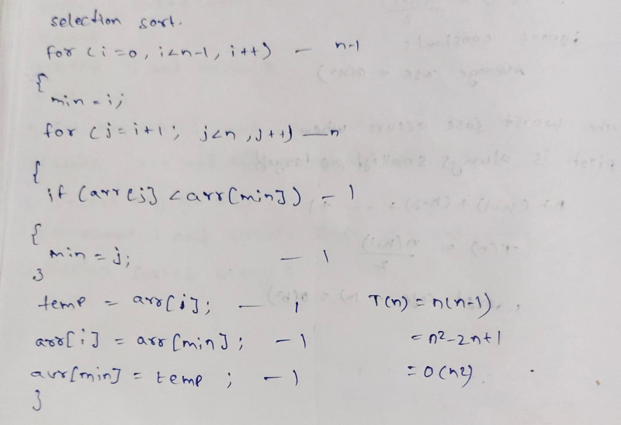 selection sort.
for (i=0, i<n-1, i++) - n-1
{
min = i;
for (j=i+1; j<n, j++) - n
{
if (arr[j] < arr[min]) - 1
{
min = j; - 1
}
temp = arr[i]; - 1 T(n) = n(n-1)
arr[i] = arr[min]; - 1 = n²-2n+1
arr[min] = temp ; - 1 = O(n²)
}